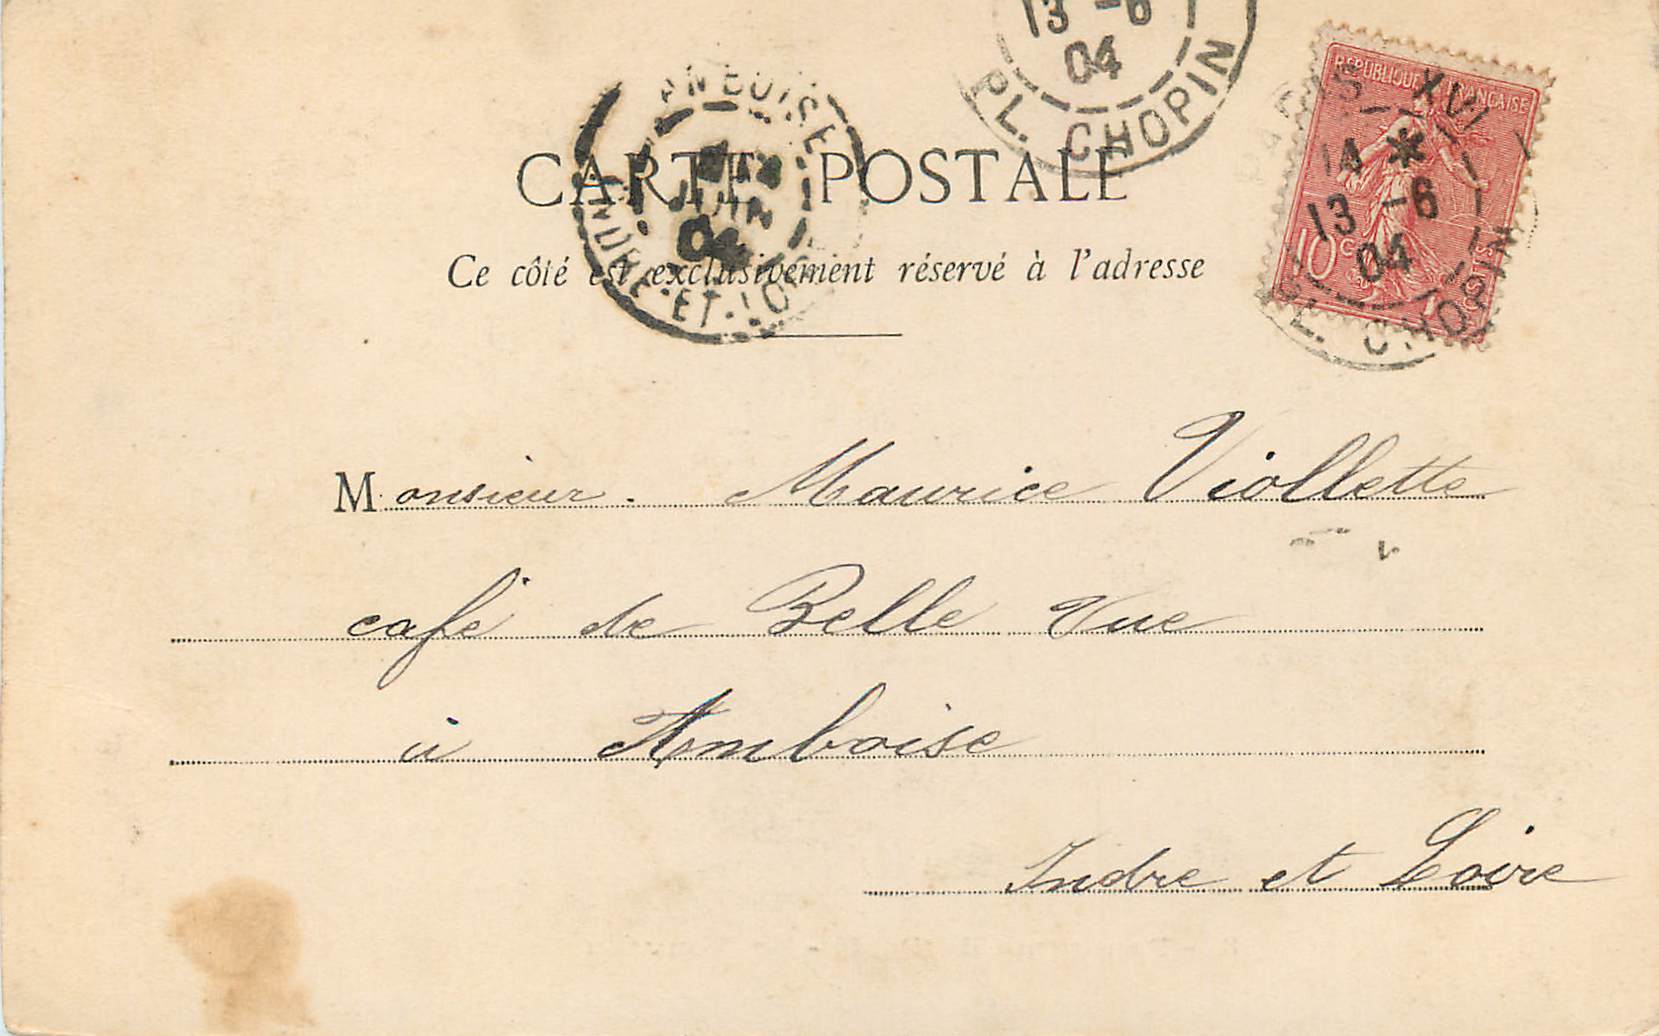 13 -6
04
PL. CHOPIN
AMBOISE
JUIN
04
INDRE-ET-LOI
REPUBLIQUE FRANÇAISE
10 c
PARIS XVI
14 *
13 -6
04
PL. CHOPIN
CARTE POSTALE
Ce côté est exclusivement réservé à l'adresse
Monsieur. Maurice Viollette
café de Belle Vue
à Amboise
Indre et Loire